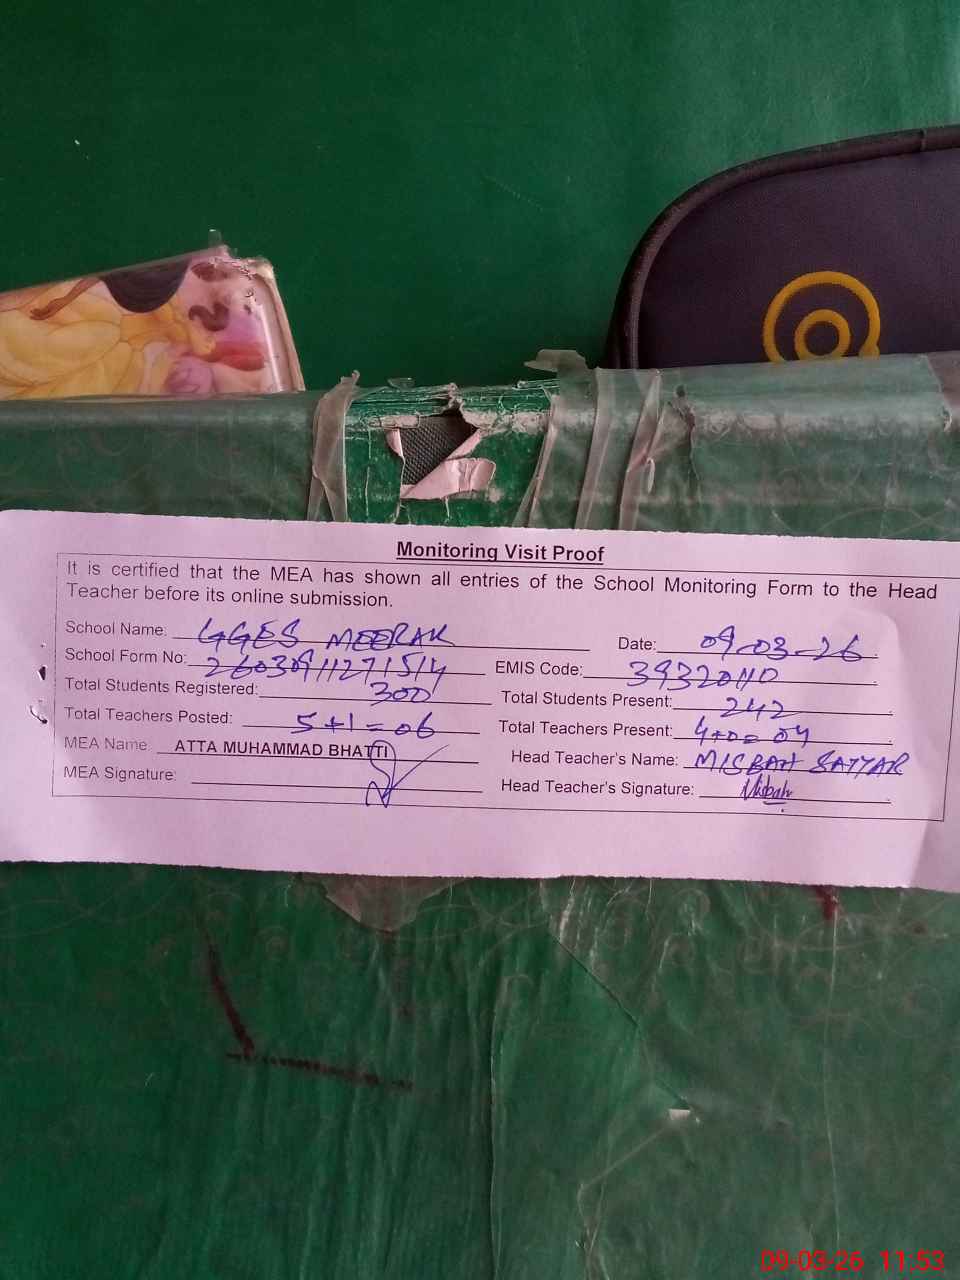 Monitoring Visit Proof
It is certified that the MEA has shown all entries of the School Monitoring Form to the Head
Teacher before its online submission.
School Name: GGES MEERAK Date: 09-03-26
School Form No: 26030911271514 EMIS Code: 39320110
Total Students Registered: 300 Total Students Present: 242
Total Teachers Posted: 5+1=06 Total Teachers Present: 4+0=04
MEA Name ATTA MUHAMMAD BHATTI Head Teacher's Name: MISBAH SATTAR
MEA Signature: Head Teacher's Signature: Misbah
09-03-26 11:53